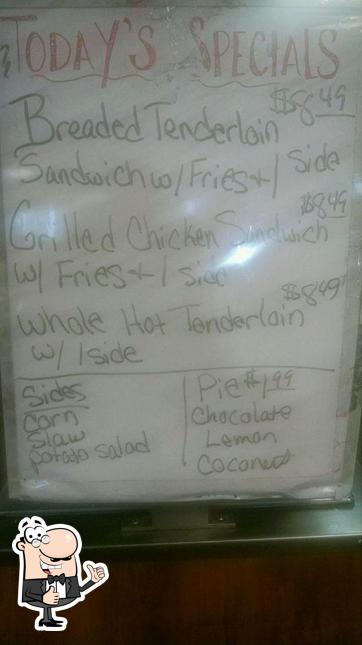 Today's Specials
$8.49
Breaded Tenderloin
Sandwich w/ Fries + 1 Side
$8.49
Grilled Chicken Sandwich
w/ Fries + 1 side
$8.49
Whole Hot Tenderloin
w/ 1 side
Sides
Corn
Slaw
Potato salad
Pie $1.99
Chocolate
Lemon
Coconut